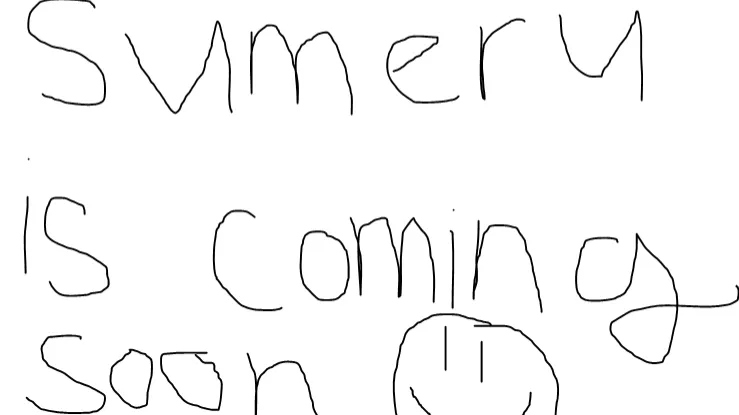 Sumery
is coming
soon